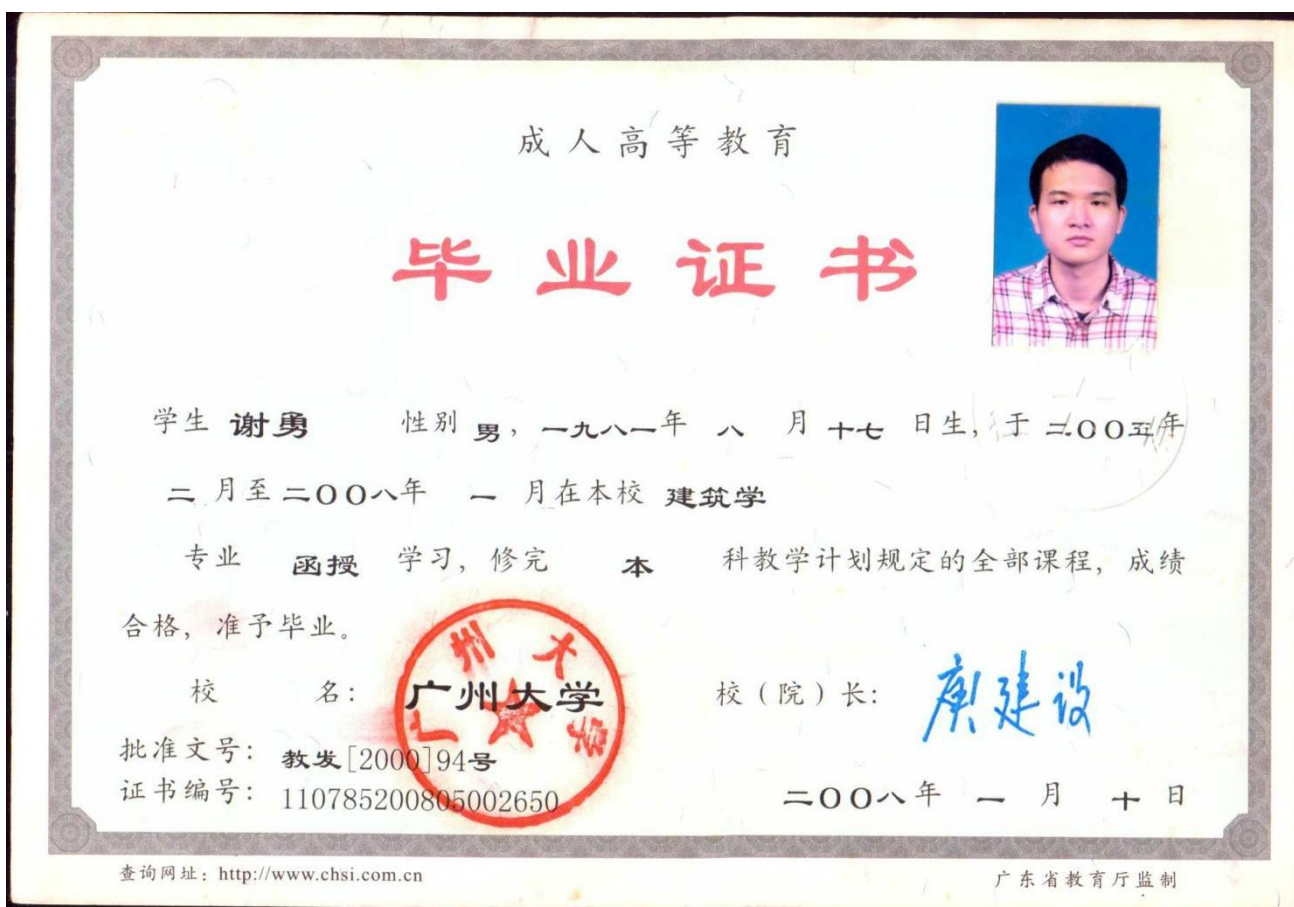 成人高等教育
毕业证书
学生 谢勇 性别 男，一九八一年 八 月 十七 日生，于 二〇〇五年
二 月至 二〇〇八年 一 月在本校 建筑学
专业 函授 学习，修完 本 科教学计划规定的全部课程，成绩
合格，准予毕业。
校 名： 广州大学 校（院）长： 庾建设
广州大学
批准文号： 教发[2000]94号
证书编号： 110785200805002650 二〇〇八年 一 月 十 日
查询网址：http://www.chsi.com.cn 广东省教育厅监制